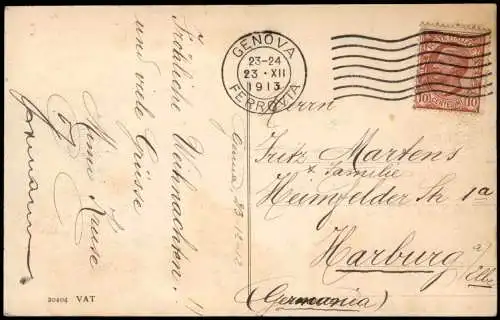 Fröhliche Weihnachten!!
und viele Grüsse
Hause
GENOVA
23-24
23 · XII
1913
FERROVIA
10 CENTESIMI 10
Genua 23.12.13
Herrn
Fritz Martens
& Familie
Heimfelder Str 1a
Harburg a/Elbe
(Germania)
20404 VAT